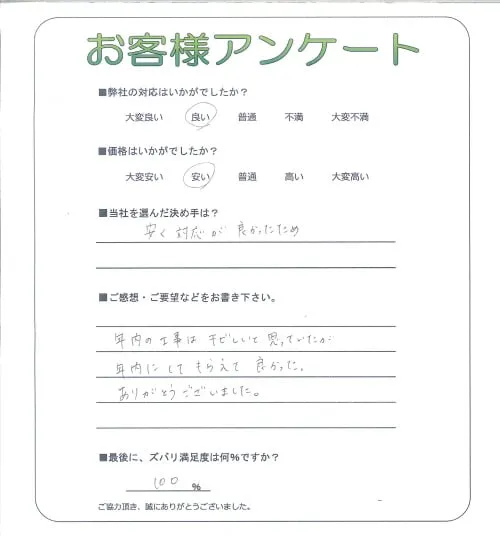 お客様アンケート
■弊社の対応はいかがでしたか？
大変良い 良い 普通 不満 大変不満
■価格はいかがでしたか？
大変安い 安い 普通 高い 大変高い
■当社を選んだ決め手は？
安く対応が良かったため
■ご感想・ご要望などをお書き下さい。
年内の工事はキビしいと思っていたが
年内にしてもらえて良かった。
ありがとうございました。
■最後に、ズバリ満足度は何%ですか？
100 %
ご協力頂き、誠にありがとうございました。